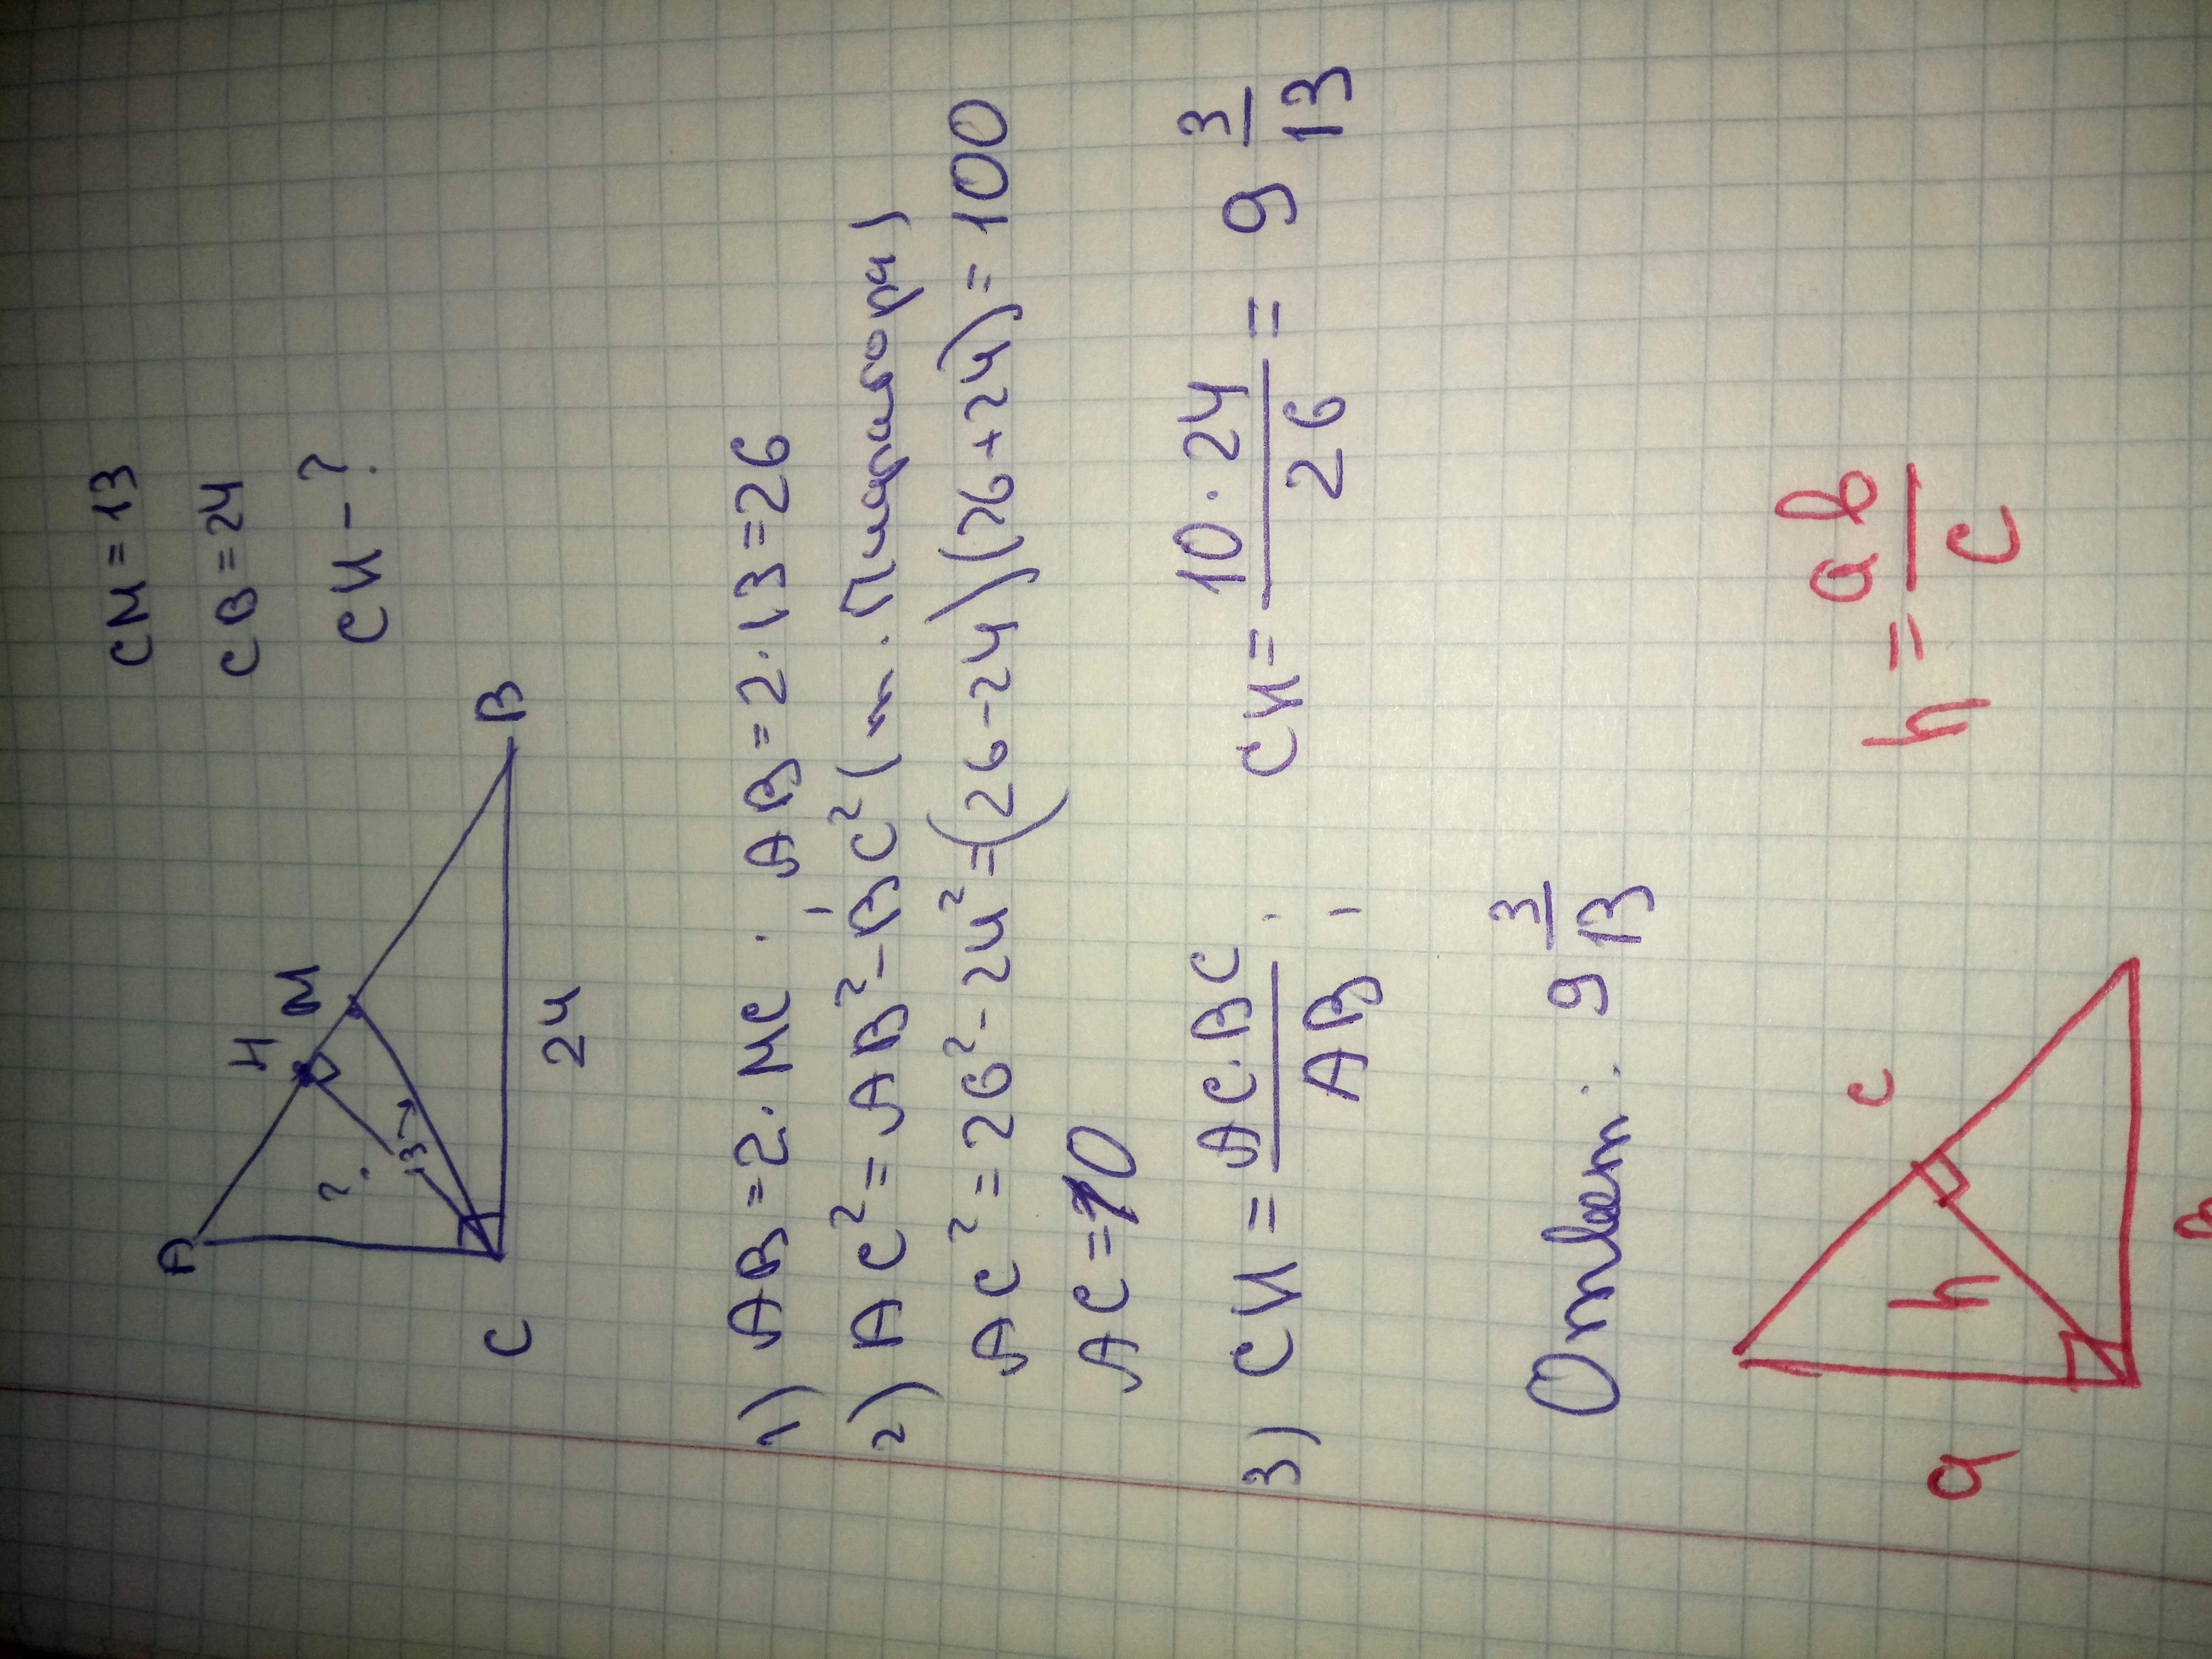 CM = 13
CB = 24
CH - ?
A
H
M
B
?
13
C
24
1) AB = 2 · MC ; AB = 2 · 13 = 26
2) AC² = AB² - BC² (т. Пифагора)
AC² = 26² - 24² = (26 - 24)(26 + 24) = 100
AC = 10
3) CH = AC · BC / AB ; CH = 10 · 24 / 26 = 9 3/13
Ответ: 9 3/13
c
h = ab / c
h
a
в